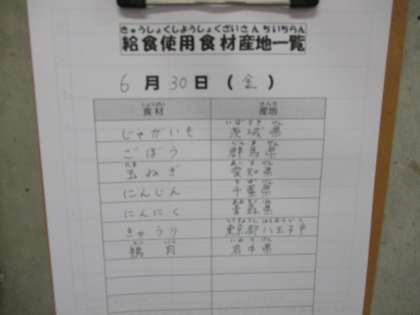 きゅうしょくしようしょくざいさんちいちらん
給食使用食材産地一覧
6月30日(金)
しょくざい さんち
食材 産地
じゃがいも 茨城県
ごぼう 群馬県
玉ねぎ 愛知県
にんじん 千葉県
にんにく 青森県
きゅうり 東京都八王子市
鶏肉 岩手県